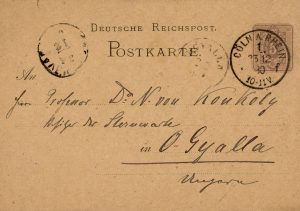 DEUTSCHE REICHSPOST.
POSTKARTE.
CÖLN A. RHEIN
1.
10-11V.
An
Herrn Professor Dr. N. von Konkoly
Besitzer der Sternwarte
in O-Gyalla
Ungarn